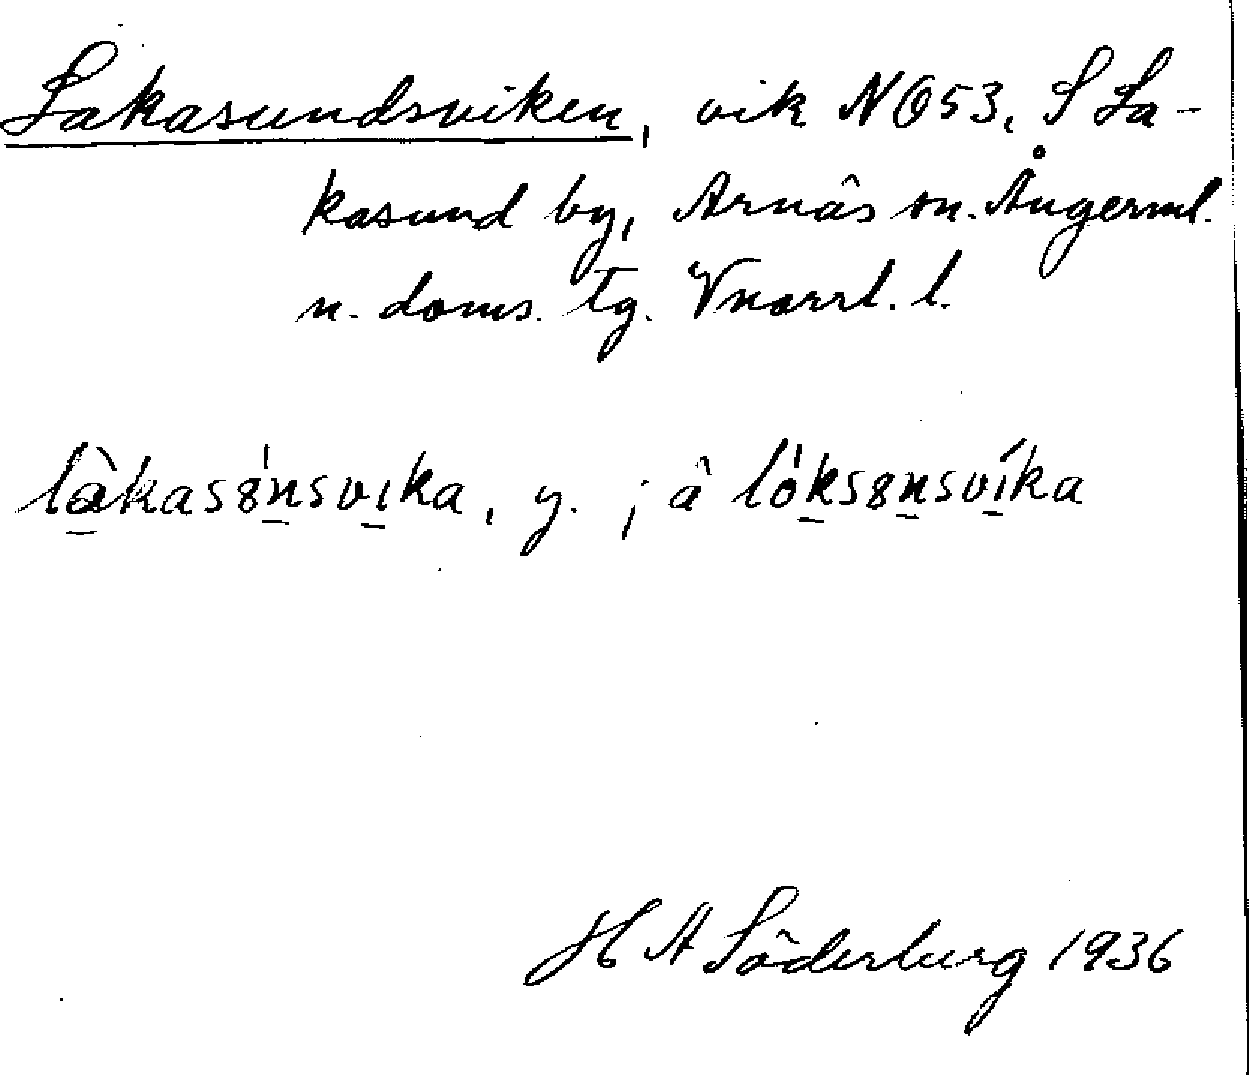 Lakasundsviken, vik NÖ53, S La-
kasund by, Arnäs sn. Ångerml.
n. doms. tg. Vnorrl. l.
làkasȣ́nsvıka, y. ; ä lóksȣnsvíka
H A Söderburg 1936